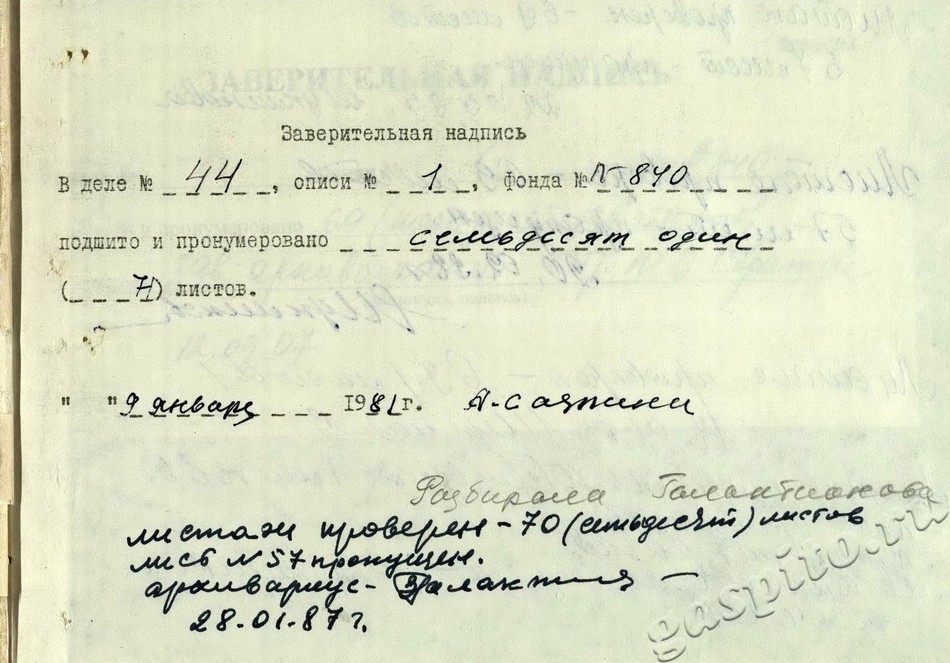 Заверительная надпись
В деле № 44, описи № 1, Фонда № П-840
подшито и пронумеровано семьдесят один
(71) листов.
" " 9 января 1981 г.
Разбирала Галактионова
листаж проверен - 70 (семьдесят) листов
лист N 57 пропущен.
архивариус -
28.01.87 г.
gaspito.ru